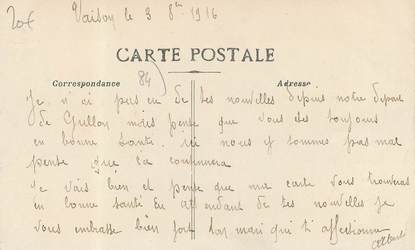 20f
Vaison le 3 8bre 1916
CARTE POSTALE
Correspondance
Adresse
84
Je n ai pas eu de tes nouvelles depuis notre depart
de Grillon mais pense que vous etes toujours
en bonne santé. ici nous y sommes pas mal
pense que ca continuera
Je vais bien et pense que ma carte vous trouvera
en bonne santé En attendant de tes nouvelles je
vous embrasse bien fort ton mari qui t'affectionne